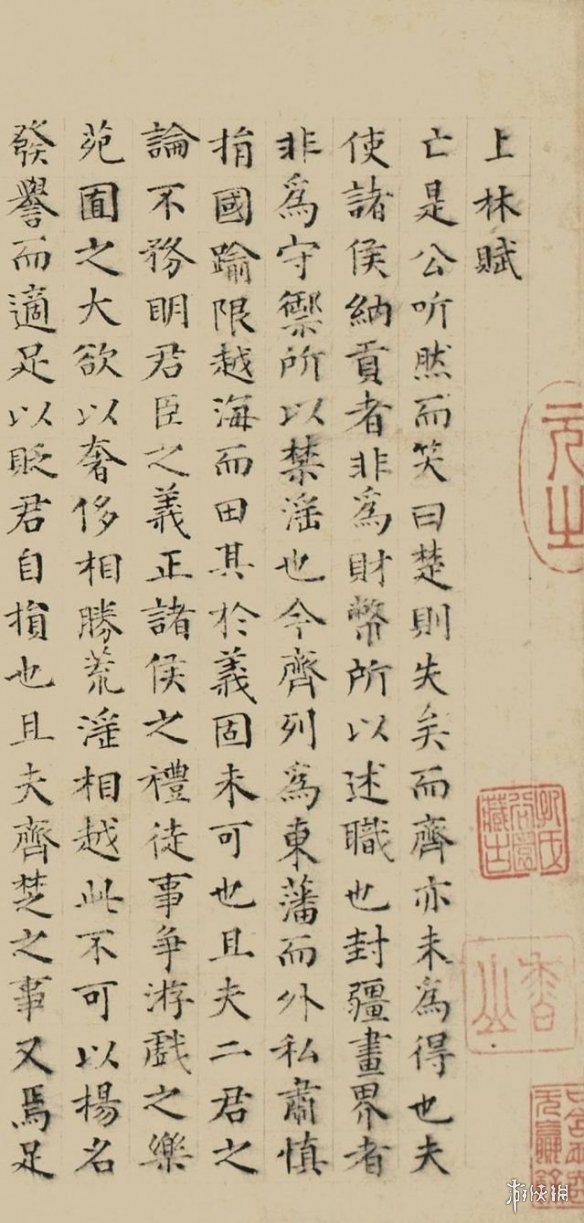 上林賦
亡是公听然而笑曰楚則失矣而齊亦未為得也夫
使諸侯納貢者非為財幣所以述職也封疆畫界者
非為守禦所以禁淫也今齊列為東藩而外私肅慎
捐國踰限越海而田其於義固未可也且夫二君之
論不務明君臣之義正諸侯之禮徒事爭游戲之樂
苑囿之大欲以奢侈相勝荒淫相越此不可以揚名
發譽而適足以貶君自損也且夫齊楚之事又焉足
游侠網